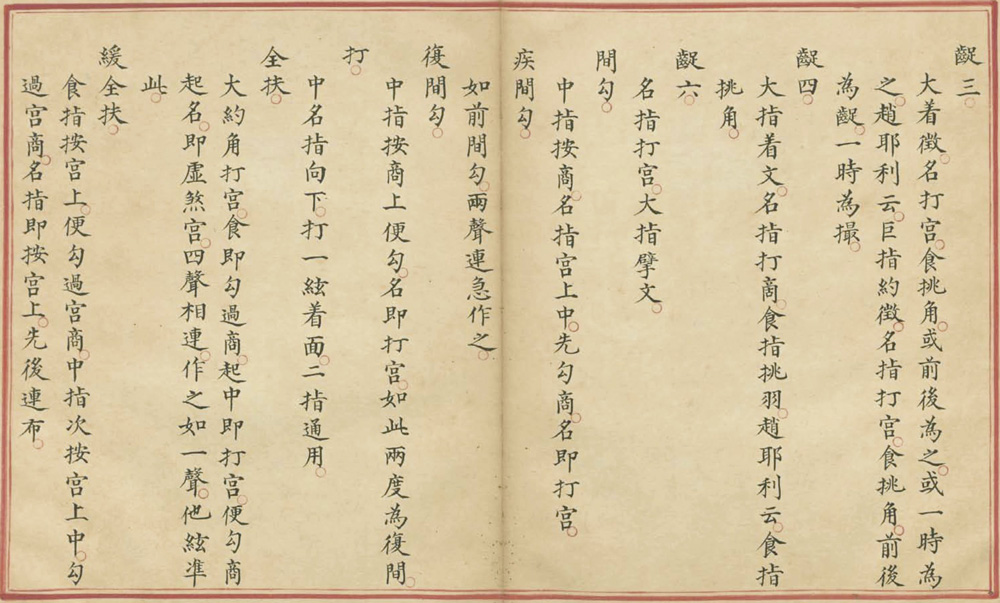 齪三。
大着徵。名打宫。食挑角。或前後為之。或一時為
之。趙耶利云。巨指約徵。名指打宫。食挑角。前後
為齪。一時為撮。
齪四。
大指着文。名指打商。食指挑羽。趙耶利云。食指
挑角。
齪六。
名指打宫。大指擘文。
間勾。
中指按商。名指宫上。中先勾商。名即打宫。
疾間勾。
如前間勾。兩聲連急作之。
復間勾。
中指按商上便勾。名即打宫。如此兩度為復間。
打。
中名指向下。打一絃着面。二指通用。
全扶。
大約角打宫。食即勾過商。起中即打宫。便勾商
起名。即虚煞宫。四聲相連。作之如一聲。他絃凖
此。
緩全扶。
食指按宫上。便勾過宫商。中指次按宫上中。勾
過宫商。名指即按宫上。先後連布。